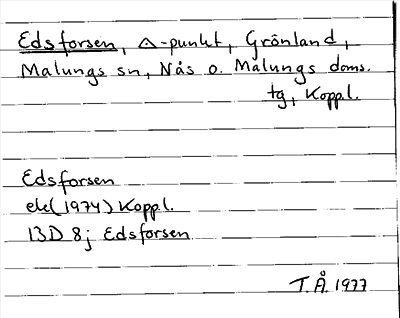 Edsforsen, △-punkt, Grönland,
Malungs sn, Nås o. Malungs doms.
tg, Koppl.
Edsforsen
ek(1974) Koppl.
13D 8j Edsforsen
T.Å. 1977